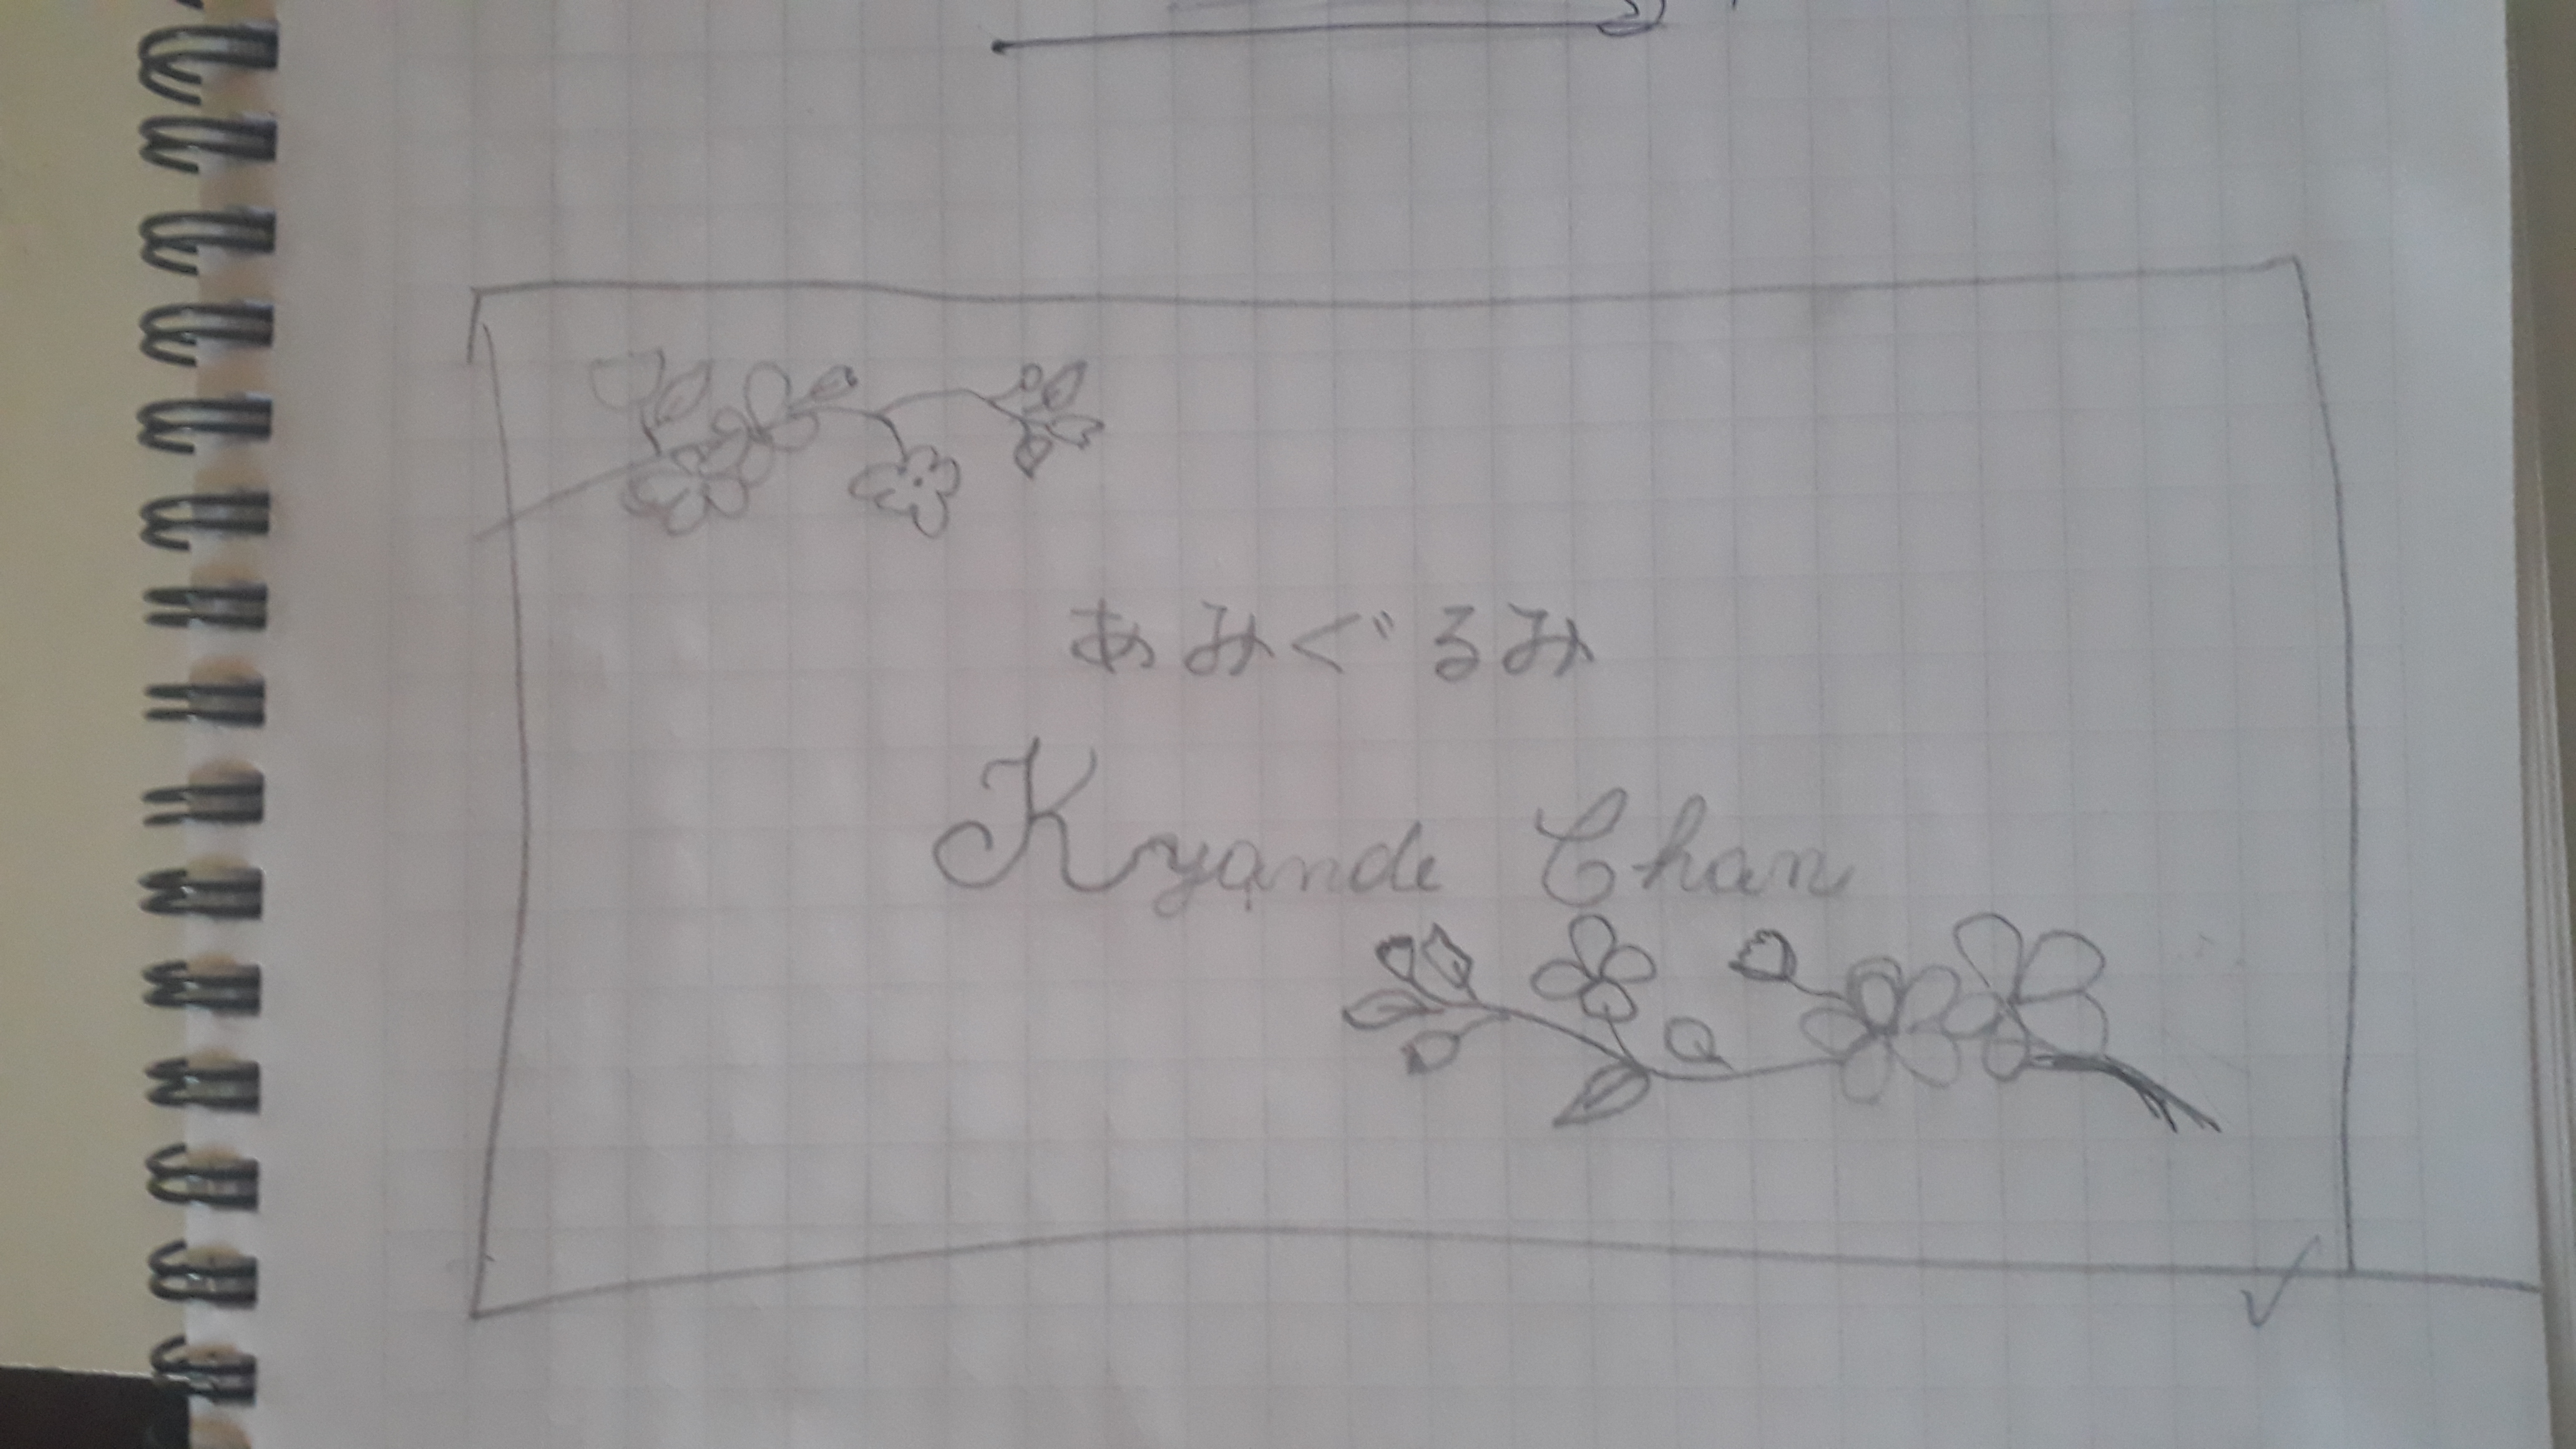 あみぐるみ
Kyande Chan